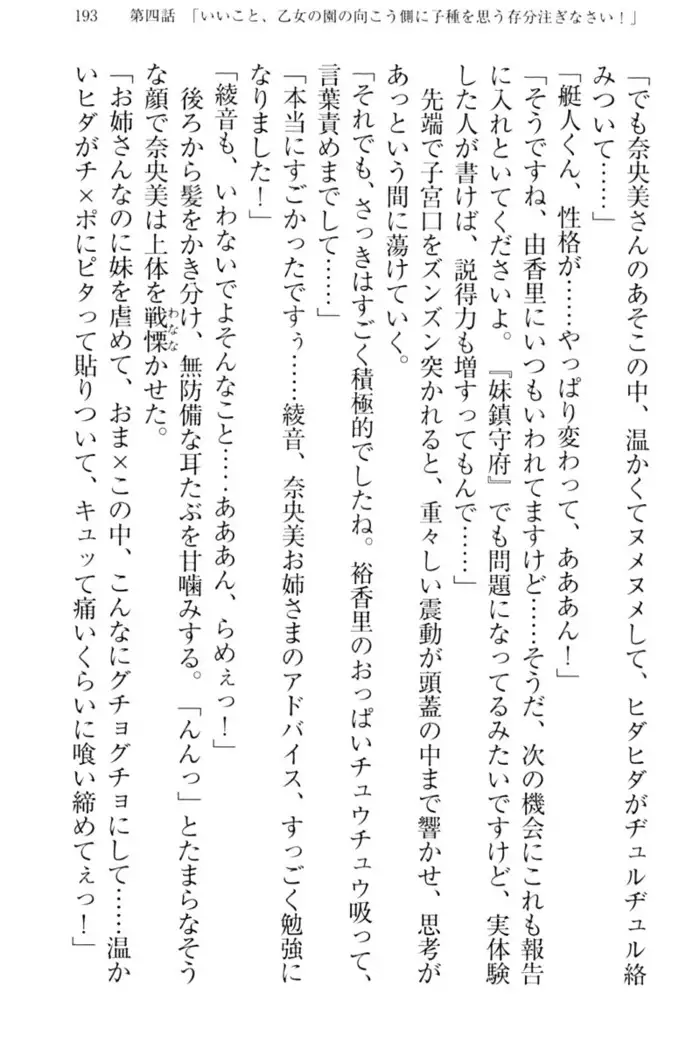 193　第四話　「いいこと、乙女の園の向こう側に子種を思う存分注ぎなさい！」
「でも奈央美さんのあそこの中、温かくてヌメヌメして、ヒダヒダがヂュルヂュル絡
みついて……」
「艇人くん、性格が……やっぱり変わって、あああん！」
「そうですね、由香里にいつもいわれてますけど……そうだ、次の機会にこれも報告
に入れといてくださいよ。『妹鎮守府』でも問題になってるみたいですけど、実体験
した人が書けば、説得力も増すってもんで……」
先端で子宮口をズンズン突かれると、重々しい震動が頭蓋の中まで響かせ、思考が
あっという間に蕩けていく。
「それでも、さっきはすごく積極的でしたね。裕香里のおっぱいチュウチュウ吸って、
言葉責めまでして……」
「本当にすごかったですぅ……綾音、奈央美お姉さまのアドバイス、すっごく勉強に
なりました！」
「綾音も、いわないでよそんなこと……あああん、らめぇっ！」
後ろから髪をかき分け、無防備な耳たぶを甘噛みする。「んんっ」とたまらなそう
な顔で奈央美は上体を戦慄かせた。
わなな
「お姉さんなのに妹を虐めて、おま×この中、こんなにグチョグチョにして……温か
いヒダがチ×ポにピタって貼りついて、キュッて痛いくらいに喰い締めてぇっ！」